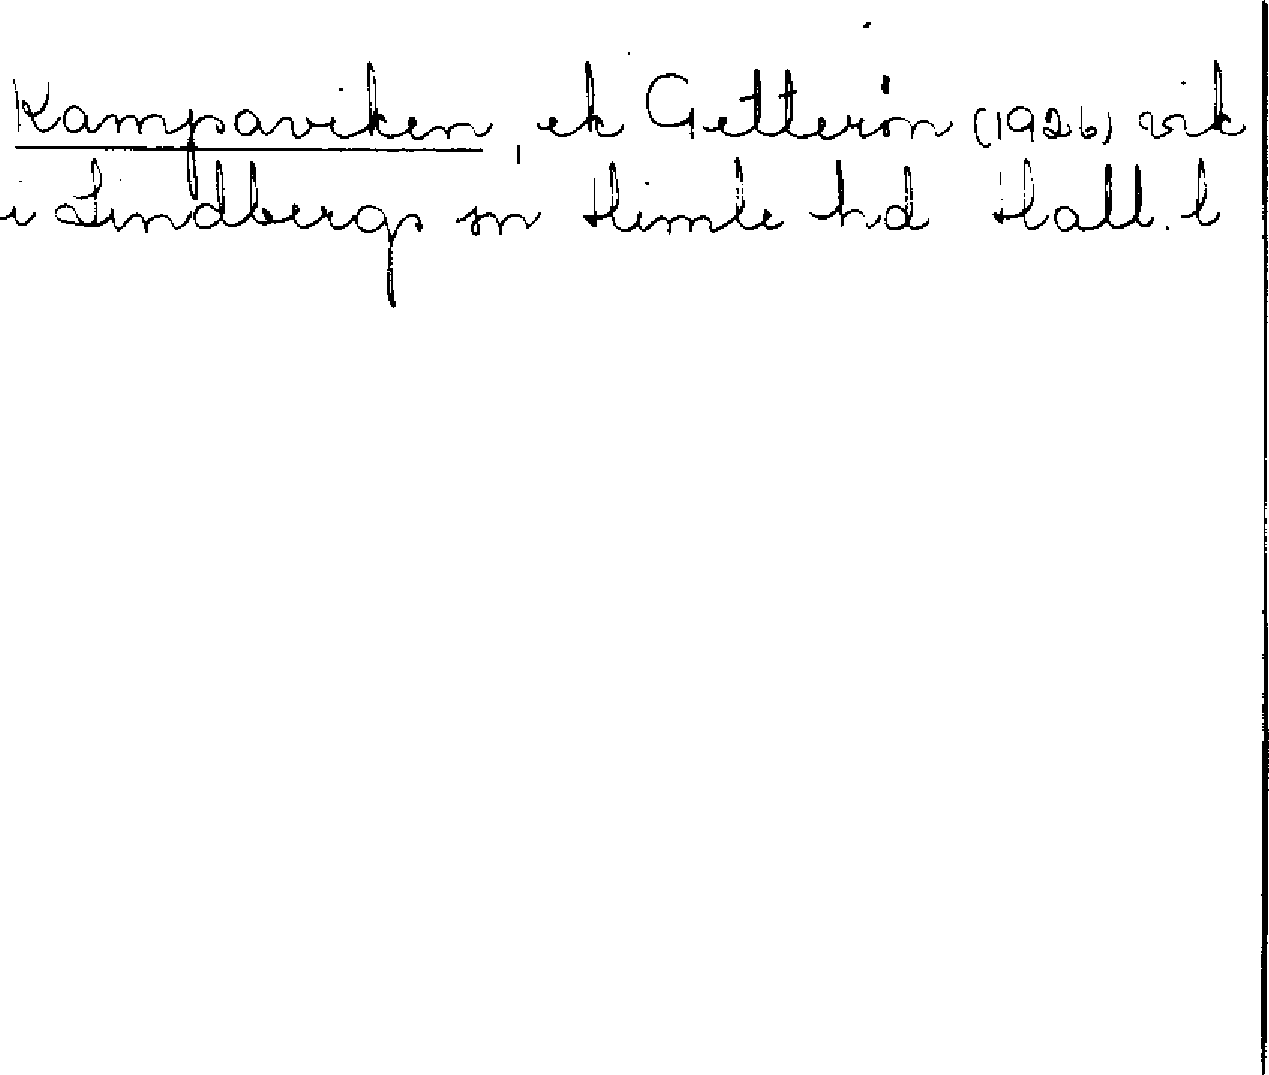 Kampaviken, ek Getterön (1926) vik
i Lindbergs sn Himle hd Hall. l